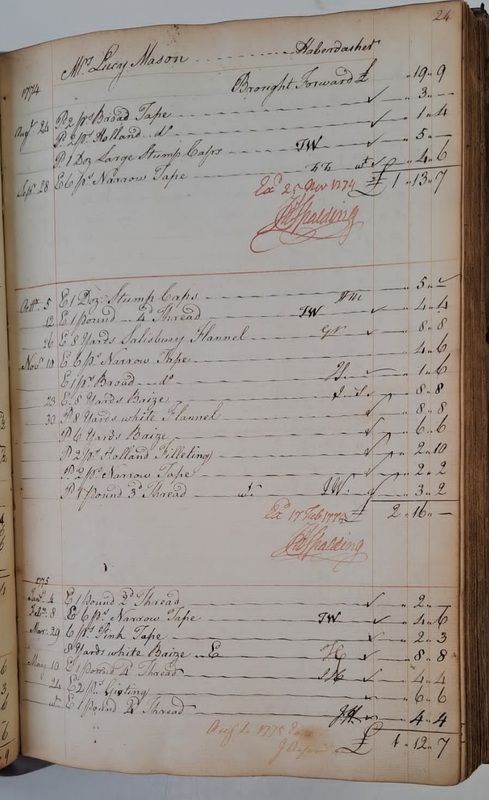 24
Mrs. Lucy Mason Haberdasher
1774 Brought Forward £ " 19 " 9
Augt. 24 P. 2 ps. Broad Tape " 3 " —
P. 2 ps. Holland do. " 1 " 4
P. 1 Doz Large Stump Caps TW " 5 " —
Sepr. 28 E 6 ps. Narrow Tape " 4 " 6
£ 1 " 13 " 7
Exd. 25 Novr 1774
Spalding
Octr. 5 E 1 Doz. Stump Caps " 5 " —
12 E 1 Pound 4d. Thread TW " 4 " 4
26 E 8 Yards Salisbury Flannel " 8 " 8
Novr. 10 E 6 ps. Narrow Tape " 4 " 6
E 1 ps. Broad do. " 1 " 6
23 E 8 Yards Baize " 8 " 8
30 P. 8 Yards white Flannel " 8 " 8
P. 6 Yards Baize " 6 " 6
P. 2 ps. Holland Filleting " 2 " 10
P. 2 ps. Narrow Tape " 2 " 2
P. 1 Pound 3d. Thread " 3 " 2
2 " 16 " —
Exd. 17 Feb 1775
Spalding
1775
Janr. 4 E 1 Pound 2d Thread " 2 " —
Febr. 8 E 6 ps. Narrow Tape TW " 4 " 6
Mar. 29 6 ps. Pink Tape " 2 " 3
8 Yards white Baize E " 8 " 8
May 10 E 1 Pound 4d Thread " 4 " 4
24 E 2 ps. " 6 " 6
E 1 Pound Thread " 4 " 4
Aug 1775
£ 1 " 12 " 7